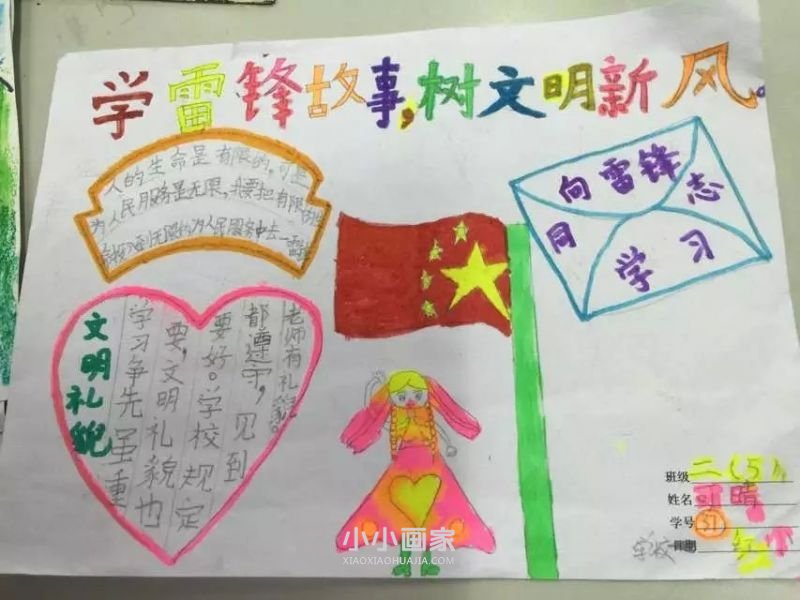 学雷锋故事,树文明新风。
人的生命是有限的,可是
为人民服务是无限,我要把有限的生
到无限的为人民服务中去一雷锋
向雷锋
同志
学习
文明礼貌
学习争先虽重
要,文明礼貌也
要好。学校规定
都遵守,见到
老师有礼貌。
小小画家
XIAOXIAOHUAJIA.COM
班级 二(5)
姓名 晴
学号 51
学校 日期